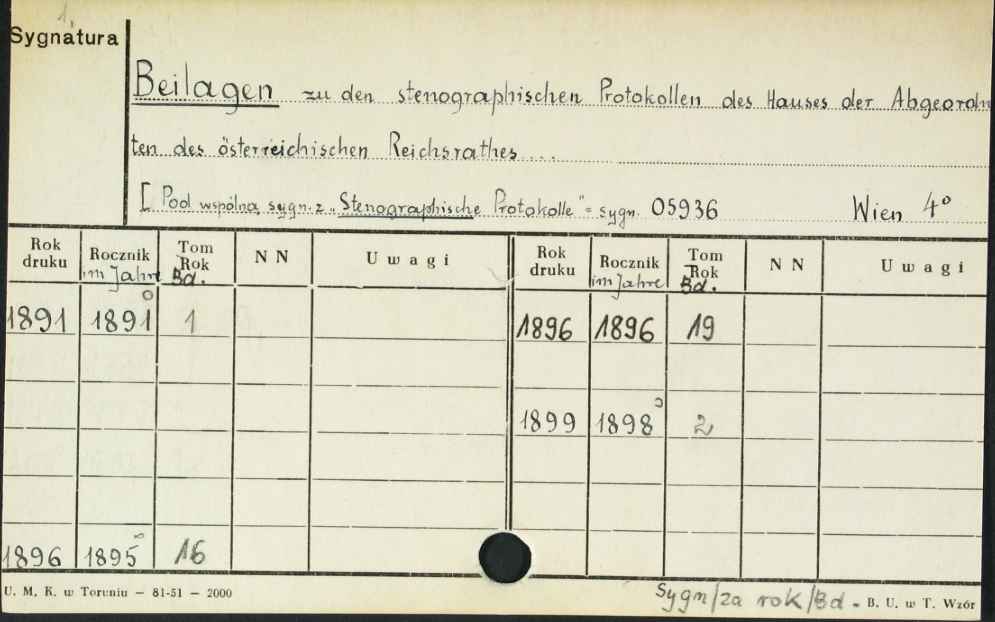 1.
Sygnatura
Beilagen zu den stenographischen Protokollen des Hauses der Abgeordn
ten des österreichischen Reichsrathes...
[ Pod wspólną sygn. z „Stenographische Protokolle" = sygn. 05936 Wien 4°
Rok druku Rocznik im Jahre Tom Rok Bd. NN Uwagi Rok druku Rocznik im Jahre Tom Rok Bd. NN Uwagi
1891 1891 1 1896 1896 19
1899 1898 2
1896 1895 16
U. M. K. w Toruniu — 81-51 — 2000
Sygn/za rok/Bd. B. U. w T. Wzór